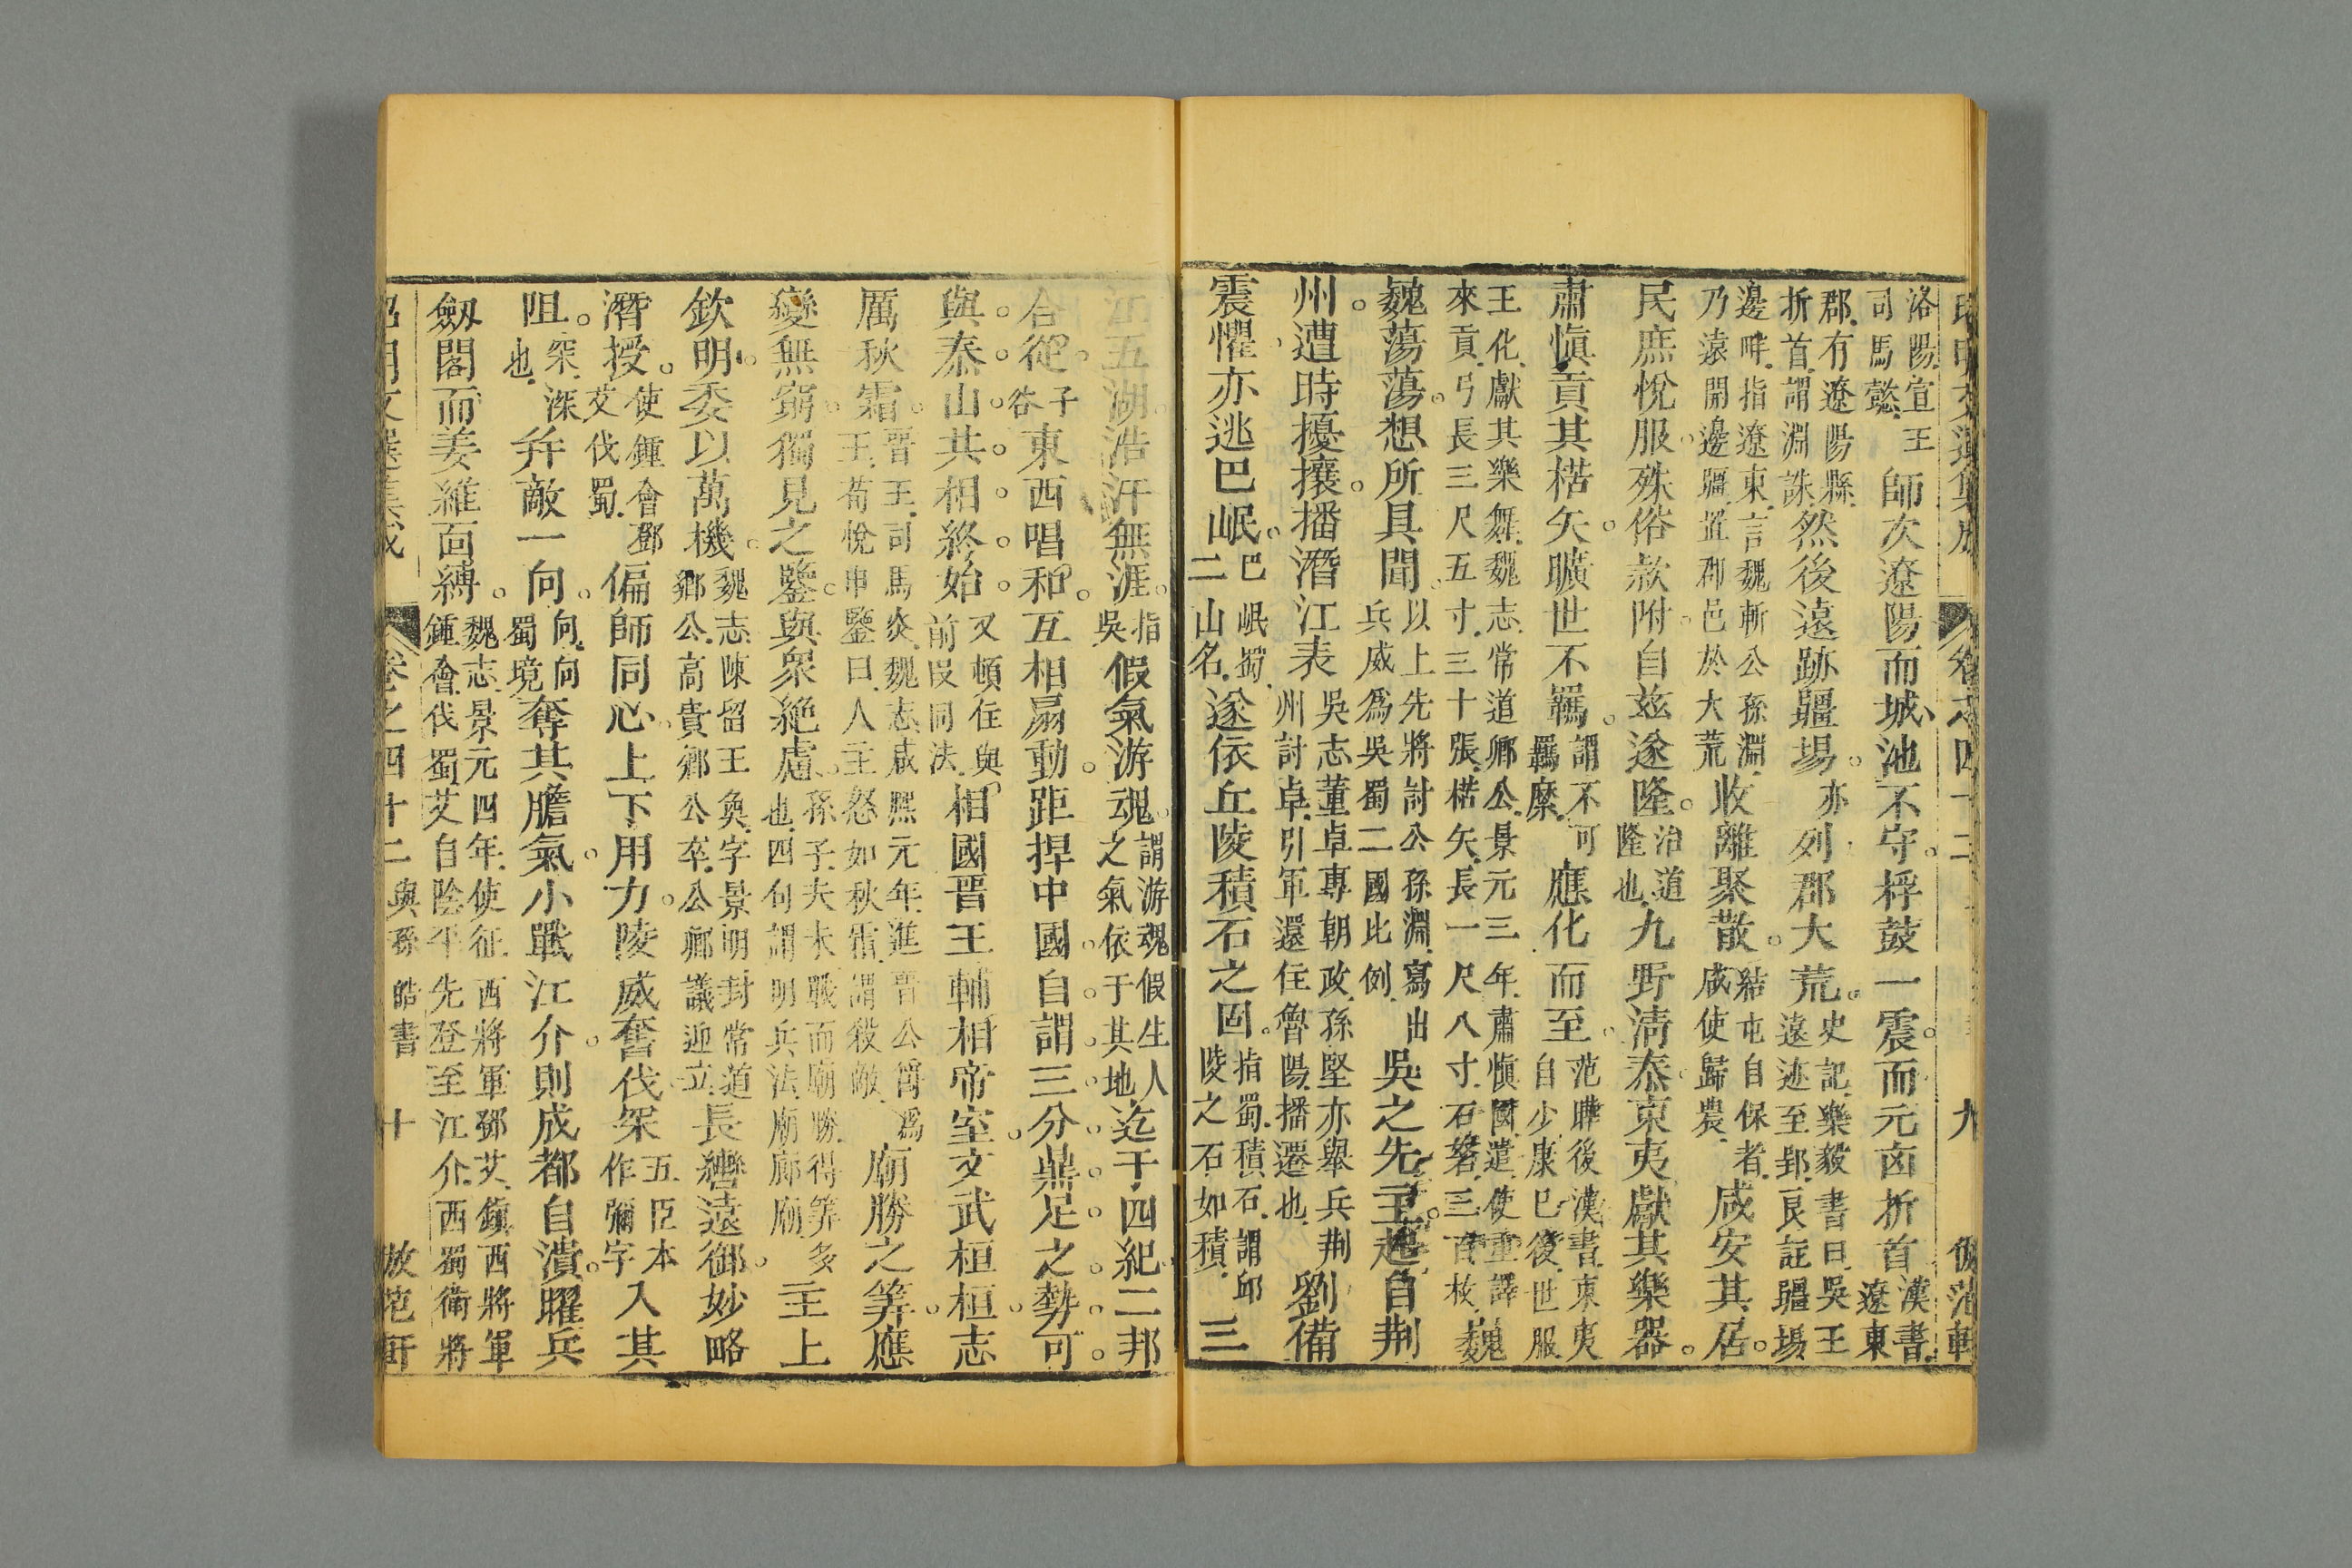 洛陽宣王
司馬懿
師次遼陽而城池不守桴鼓一震而元凶折首
漢書
遼東
郡有遼陽縣
折首謂淵誅
然後遠跡疆場
亦
列郡大荒
史記樂毅書曰吳王
遠迹至郢良註疆場
邊畔指遼東言魏斬公孫淵
乃遠開邊疆置郡邑於大荒
收離聚散
結屯自保者
咸使歸農
咸安其居
民庶悅服殊俗款附自茲遂隆
治道
隆也
九野清泰東夷獻其樂器
肅慎貢其楛矢曠世不羈
謂不可
羈縻
應化而至
范曄後漢書東夷
自少康已後世服
王化獻其樂舞魏志常道鄉公景元三年肅慎國遣使重譯
來貢弓長三尺五寸三十張楛矢長一尺八寸石砮三百枚
魏
巍蕩蕩想所具聞
以上先將討公孫淵寫出
兵威爲吳蜀二國比例
吳之先主起自荆
州遭時擾攘播潛江表
吳志董卓專朝政孫堅亦舉兵荆
州討卓引軍還住魯陽播遷也
劉備
震懼亦逃巴岷
巴岷蜀
二山名
遂依丘陵積石之固
指蜀積石謂邱
陵之石如積
三
江五湖浩汗無涯
指
吳
假氣游魂
謂游魂假生人
之氣依于其地
迄于四紀二邦
合從
子
俗
東西唱和互相扇動距捍中國自謂三分鼎足之勢可
與泰山共相終始
又頓住與
前段同法
相國晋王輔相帝室文武桓桓志
厲秋霜
晋王司馬炎魏志咸熙元年進晋公爵爲
王荀悅申鑒曰人主怒如秋霜謂殺敵
廟勝之筭應
變無窮獨見之鑒與眾絕慮
孫子夫未戰而廟勝得筭多
也四句謂明兵法廟廊廟
主上
欽明委以萬機
魏志陳留王奐字景明封常道
鄉公高貴鄉公卒公卿議迎立
長轡遠御妙略
潛授
使鍾會鄧
艾伐蜀
偏師同心上下用力陵威奮伐罙
五臣本
作彌字
入其
阻
罙深
也
并敵一向
向向
蜀境
奪其膽氣小戰江介則成都自潰曜兵
劔閣而姜維面縛
魏志景元四年使征西將軍鄧艾鎮西將軍
鍾會伐蜀艾自陰平先登至江介西蜀衛將
昭明文選集成
卷之四十二
與孫皓書
十
倣范軒